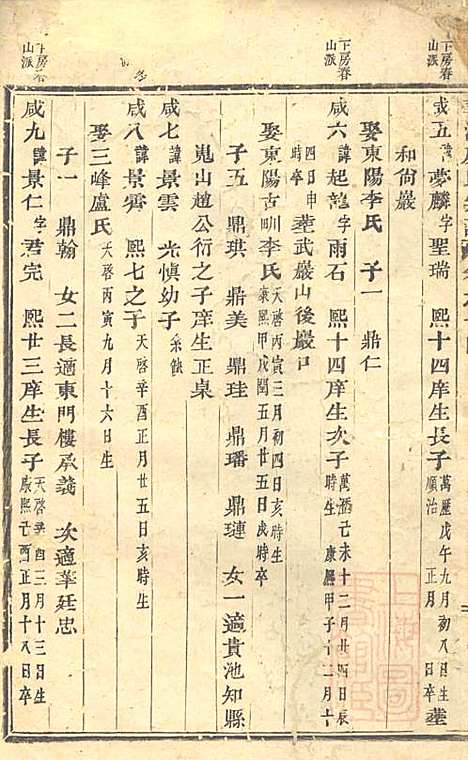 下房春山派
咸五諱夢麟字聖瑞 熙十四庠生長子萬歷戊午九月初八日生順治 正月 日卒塟
和尙巖
娶東陽李氏 子一 鼎仁
下房春山派
咸六諱起龍字雨石 熙十四庠生次子萬歷己未十二月廿四日辰時生 康熙甲子十二月十
四日申時卒 塟武巖山後巖戸
娶東陽古㽦李氏天啓丙寅三月初四日亥時生康熙甲戌閏五月廿五日戌時卒
子五 鼎琪 鼎美 鼎珪 鼎璠 鼎璉 女一適貴池知縣
嵬山趙公衍之子庠生正桌
咸七諱景雲 光慎幼子系蝕
咸八諱景霽 熙七之子天啓辛酉正月廿五日亥時生
娶三峰盧氏天啓丙寅九月十六日生
子一 鼎翰 女二長適東門樓承義 次適華廷忠
下房春山派
咸九諱景仁字君完 熙廿三庠生長子天啓辛酉三月十三日生康熙己酉正月十八日卒